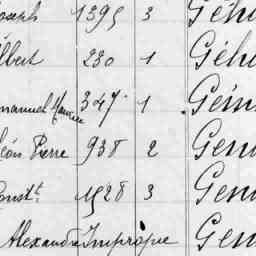 oseph 1395 3 Géh
lbert 230 1 Géh
manuel Maurice 347 1 Gém
éon Pierre 938 2 Gen
Const.t 1528 3 Gen
Alexandre Impropre Gen